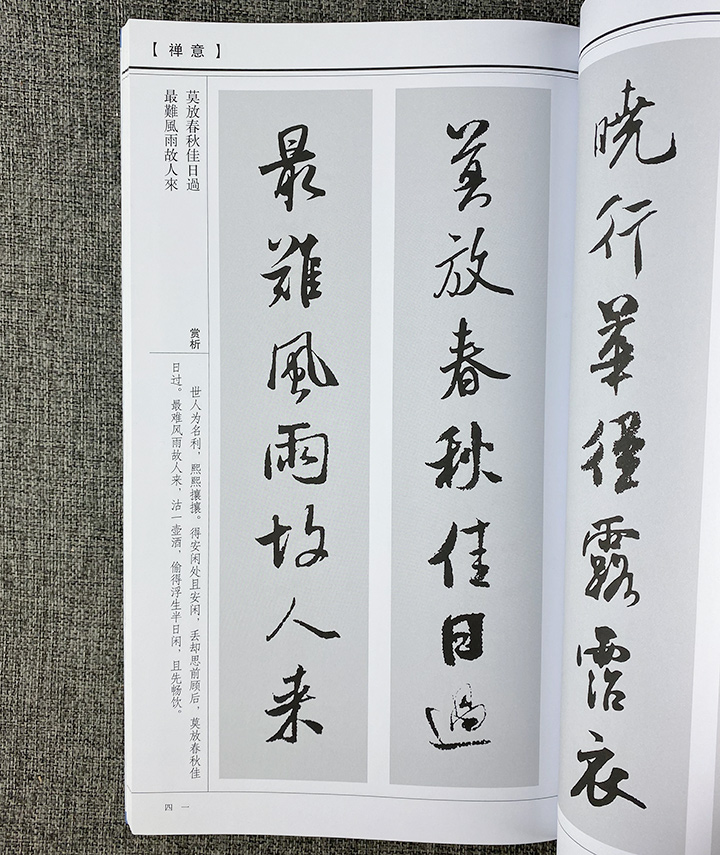 曉行華徑露霑衣
【禅意】
莫放春秋佳日過
最難風雨故人来
莫放春秋佳日過
最難風雨故人來
赏析
世人为名利，熙熙攘攘。得安闲处且安闲，丢却思前顾后，莫放春秋佳
日过。最难风雨故人来，沽一壶酒，偷得浮生半日闲，且先畅饮。
四一